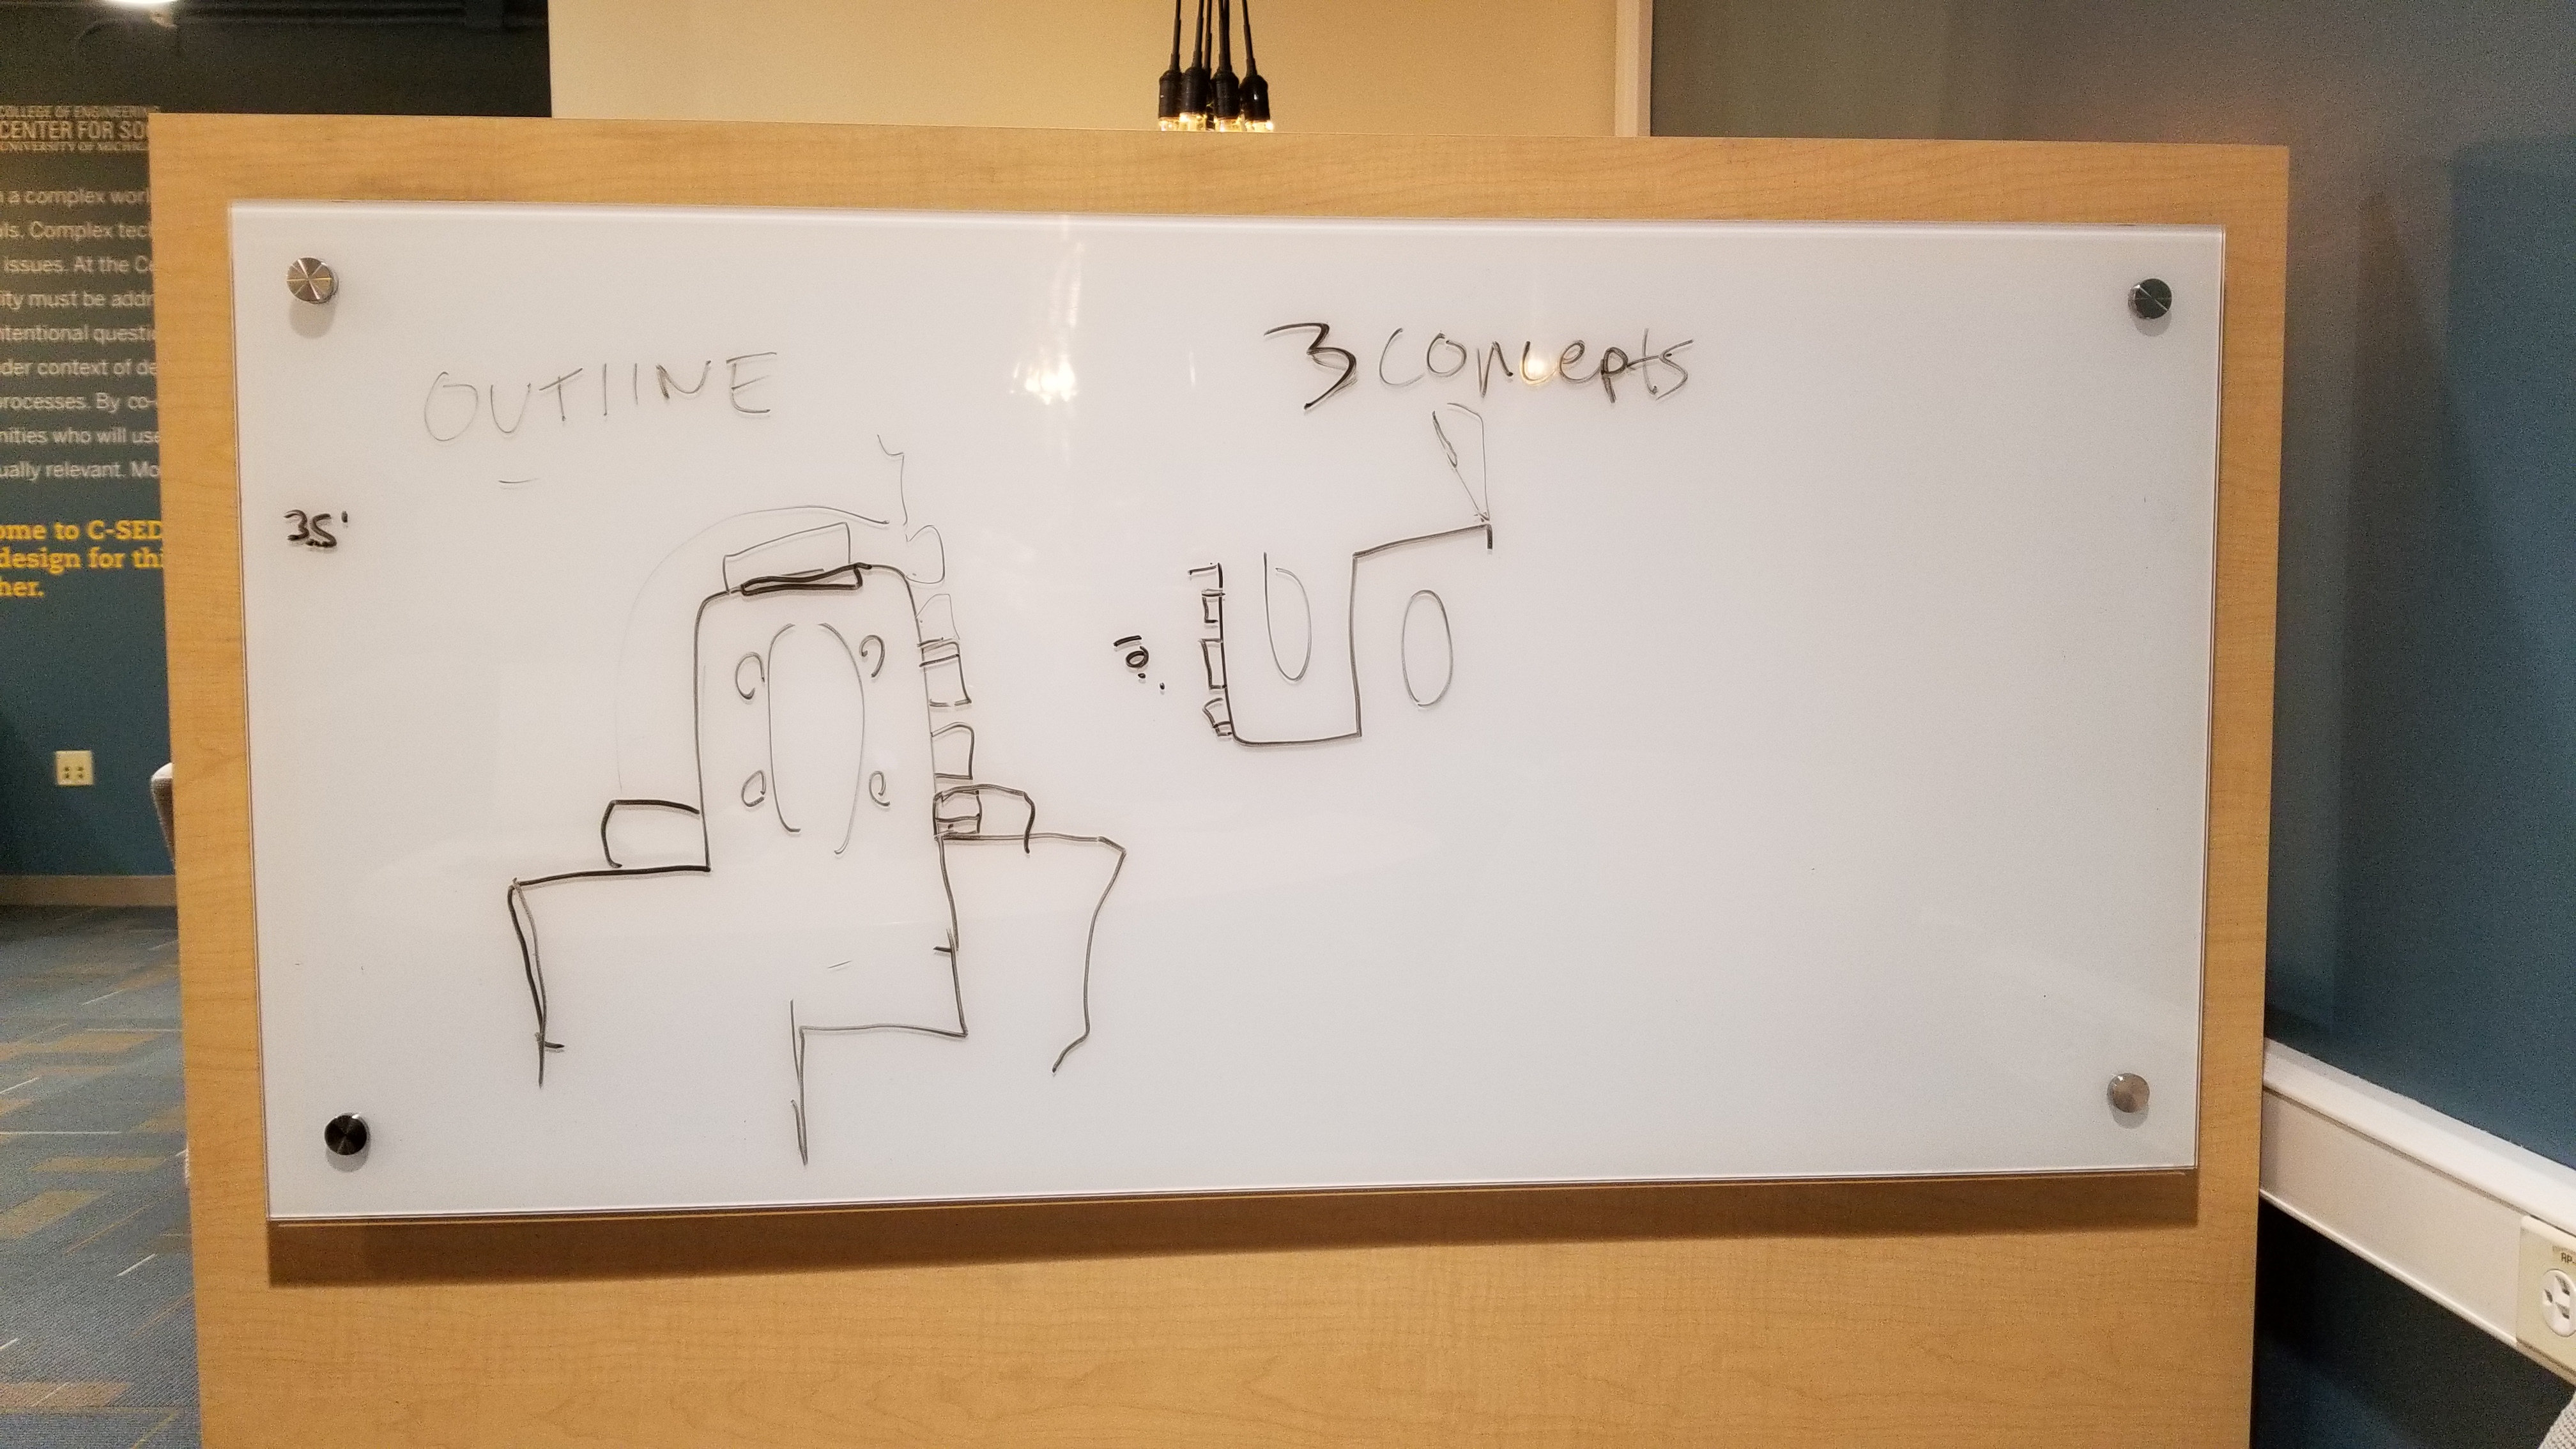 COLLEGE OF ENGINEERING
CENTER FOR SO
UNIVERSITY OF MICHIG
a complex worl
ls. Complex tec
issues. At the Ce
ity must be addr
ntentional questi
der context of de
rocesses. By co-
nities who will use
ually relevant. Mo
ome to C-SED
design for thi
her.
OUTlINE
3 concepts
35'
10'